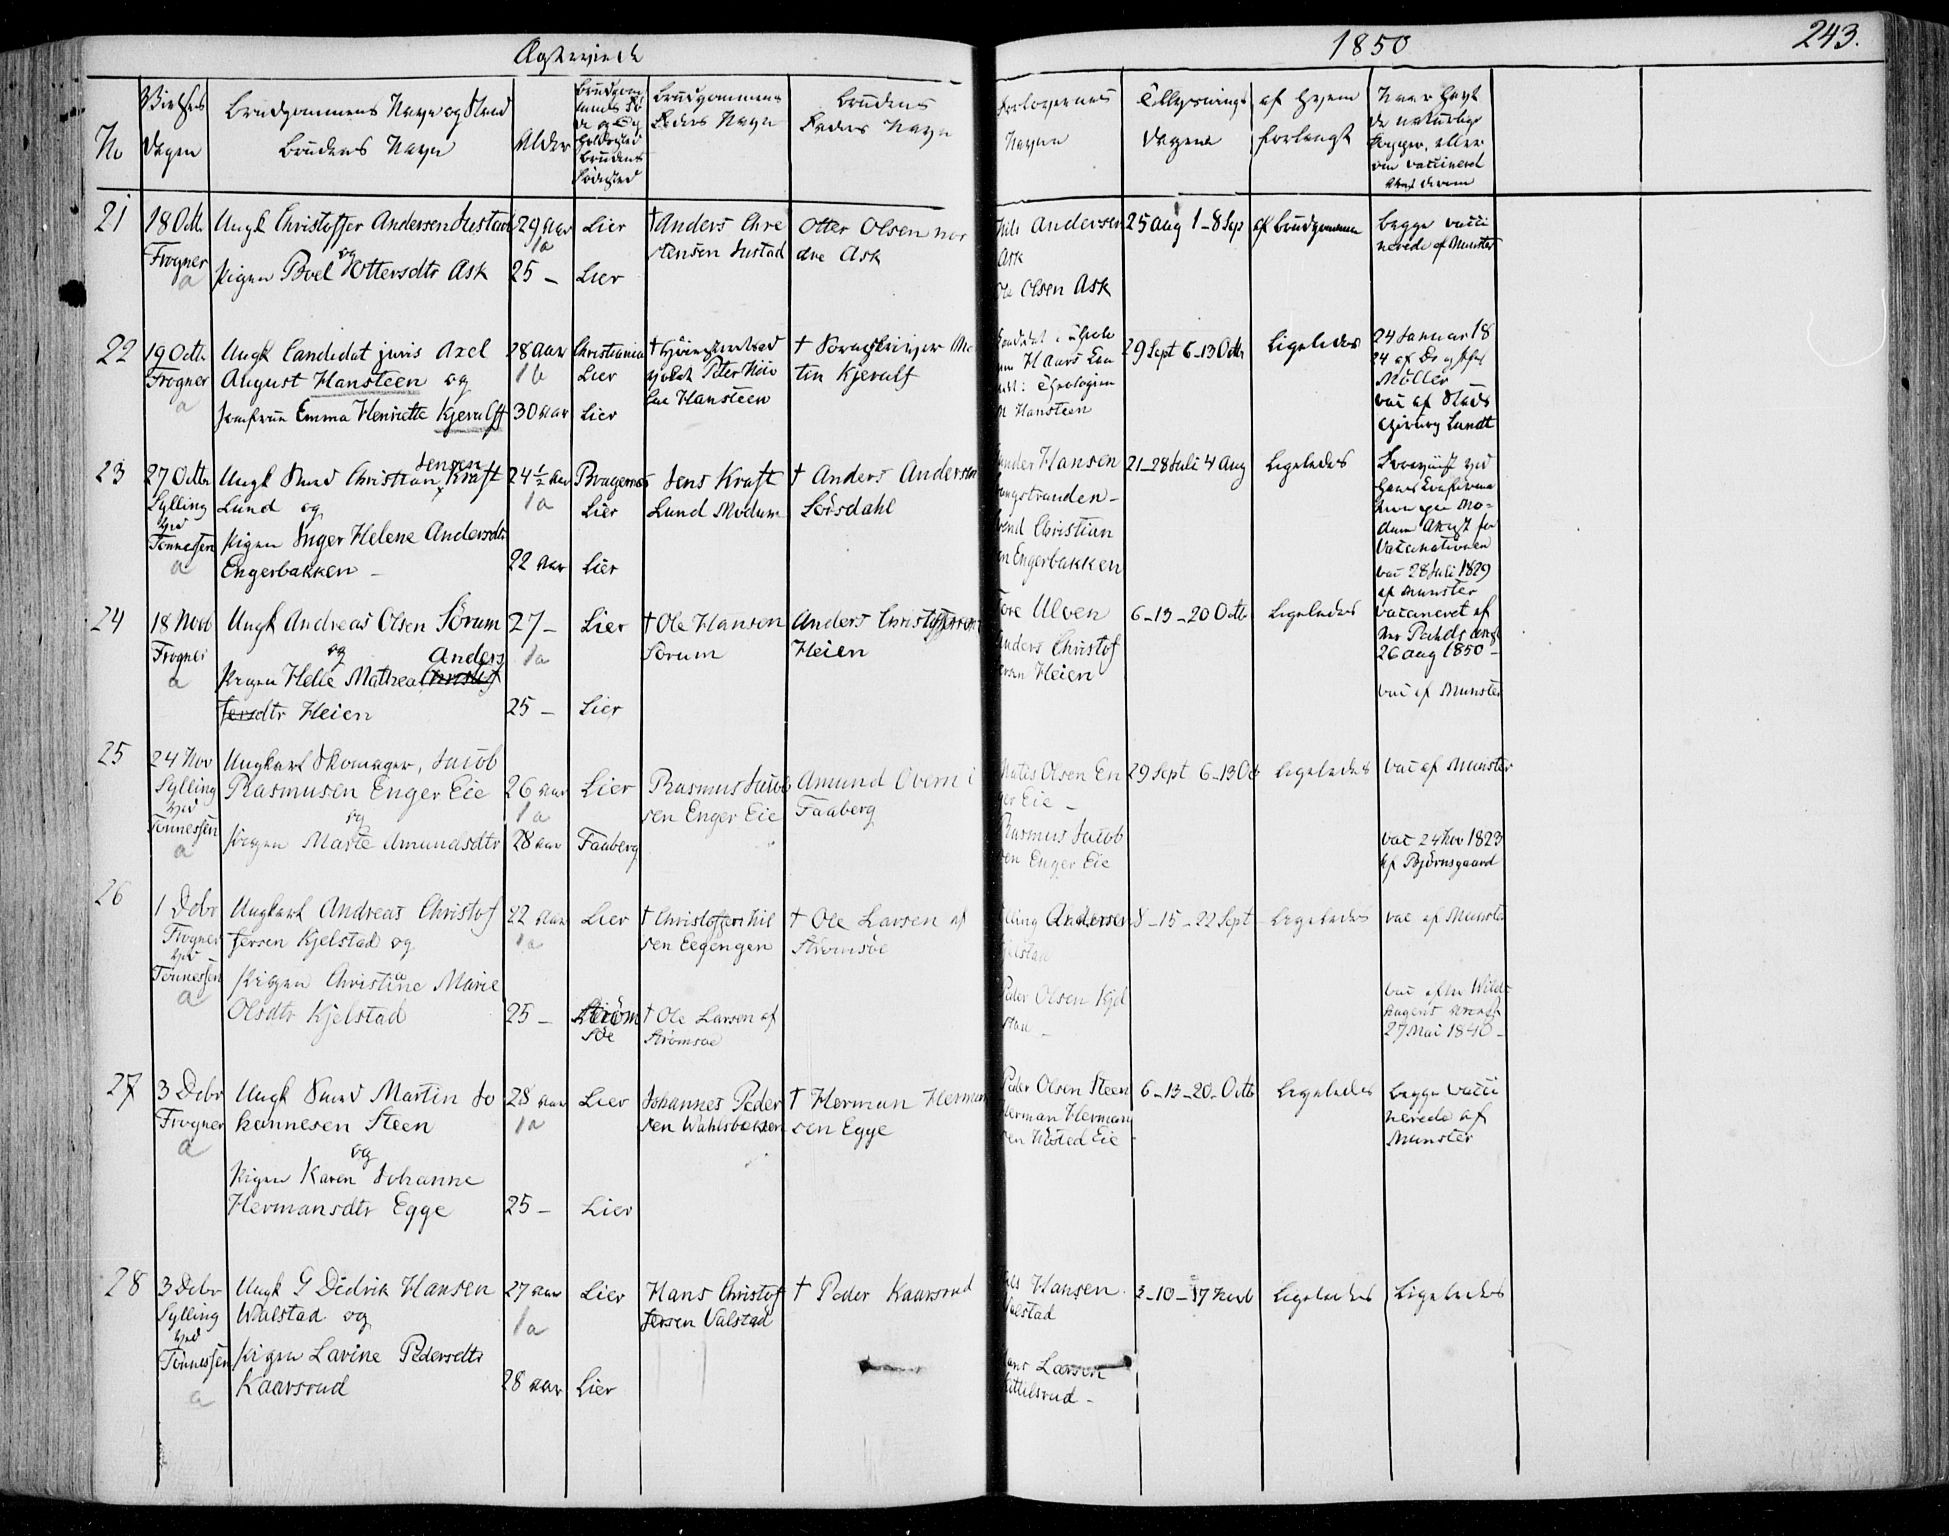 1850
243.
No
Vielses
Dagen
Brudgommens Navn og Stand
Brudens Navn
Alder
Brudgommens
Faders Navn
Brudens
Faders Navn
Forlovernes
Navne
Tillysnings
Dagene
af Hvem
forlangt
21
18 Octb
Frogner
a
Ungk Christoffer Andersen Justad
og
Pigen Boel Ottersdtr Ask
29 Aar
1a
25 –
Lier
Lier
† Anders Chri
stensen Justad
Otter Olsen nor
dre Ask
Nils Andersen
Ask
Ole Olsen Ask
25 Aug 1–8 Sep
af Brudgommen
begge vacci
nerede af Münster
22
19 Octb
Frogner
a
Ungk Candidat juris Axel
August Hansteen og
Jomfrue Emma Henriette Kjerulff
28 Aar
1b
30 Aar
Christiania
Lier
Lier
Peter Hansteen
† Sorenskriver
Kjerulf
Hansteen
29 Sept 6–13 Octb
Ligeledes
24 Januar 18
24 af
Møller
vac af Stads
Chirurg Lundt
23
27 Octbr
Sylling
ved
Tønnessen
a
Ungk Christian Jensen Kraft
Lund og
Pigen Inger Helene Andersdtr
Engerbakken –
24½ Aar
1a
22 Aar
Bragernes
Lier
Lier
Jens Kraft
Lund Modum
† Anders Andersen
Sørsdahl
Hansen
21–28 Juli 4 Aug
Ligeledes
vac 28 Juli 1829
af Münster
24
18 Novb
Frogner
a
Ungk Andreas Olsen Sørum
og
Anders
Pigen Helle Mathea Christof
fersdtr Heien
27 –
1a
25 –
Lier
Lier
† Ole Hansen
Sørum
Anders Christoffersen
Heien
Tore Ulven
Anders Christof
fersen Heien
6–13–20 Octb
Ligeledes
vaccineret af
26 Aug 1850 –
vac af Münster
25
24 Nov
Sylling
ved
Tønnessen
a
Ungkarl Skomager, Jacob
Rasmusen Enger Eie
og
Pigen Marte Amundsdtr
26 Aar
1a
28 Aar
Lier
Faaberg
Rasmus Jacob
sen Enger Eie
Amund i
Faaberg
Matis Olsen En
ger Eie –
Rasmus Jacob
sen Enger Eie
29 Sept 6–13 Oct
Ligeledes
vac af Münster
vac 24 Nov 1823
af Bjørnsgaard
26
1 Decbr
Frogner
ved
Tønnessen
a
Ungkarl Andreas Christof
fersen Kjelstad og
Pigen Christine Marie
Olsdtr Kjelstad
22 Aar
1a
25 –
Lier
Strøm
søe
† Christoffer Nil
sen Eegengen
† Ole Larsen af
Strømsøe
† Ole Larsen af
Strømsøe
Andersen
Kjelstad
Peder Olsen Kjel
stad –
8–15–22 Sept
Ligeledes
vac af Münster
27 Mai 1840 –
27
3 Decbr
Frogner
a
Ungk Martin Jo
hannesen Steen
og
Pigen Karen Johanne
Hermansdtr Egge
28 Aar
1a
25 –
Lier
Lier
Johannes Peder
sen Wahlsbakken
† Herman Herman
sen Egge
Peder Olsen Steen
Herman Herman
sen Eie
6–13–20 Octb
Ligeledes
begge vacci
nerede af
Münster
28
3 Decbr
Sylling
ved
Tønnessen
a
Ungk G Didrik Hansen
Walstad og
Pigen Lavine Pedersdtr
Kaarsrud
27 Aar
1a
28 Aar
Lier
Lier
Hans Christof
fersen Valstad
† Peder Kaarsrud
Nils Hansen
Valstad
Hans Larsen
Kittilsrud –
3–10–17 Novb
Ligeledes
Ligeledes